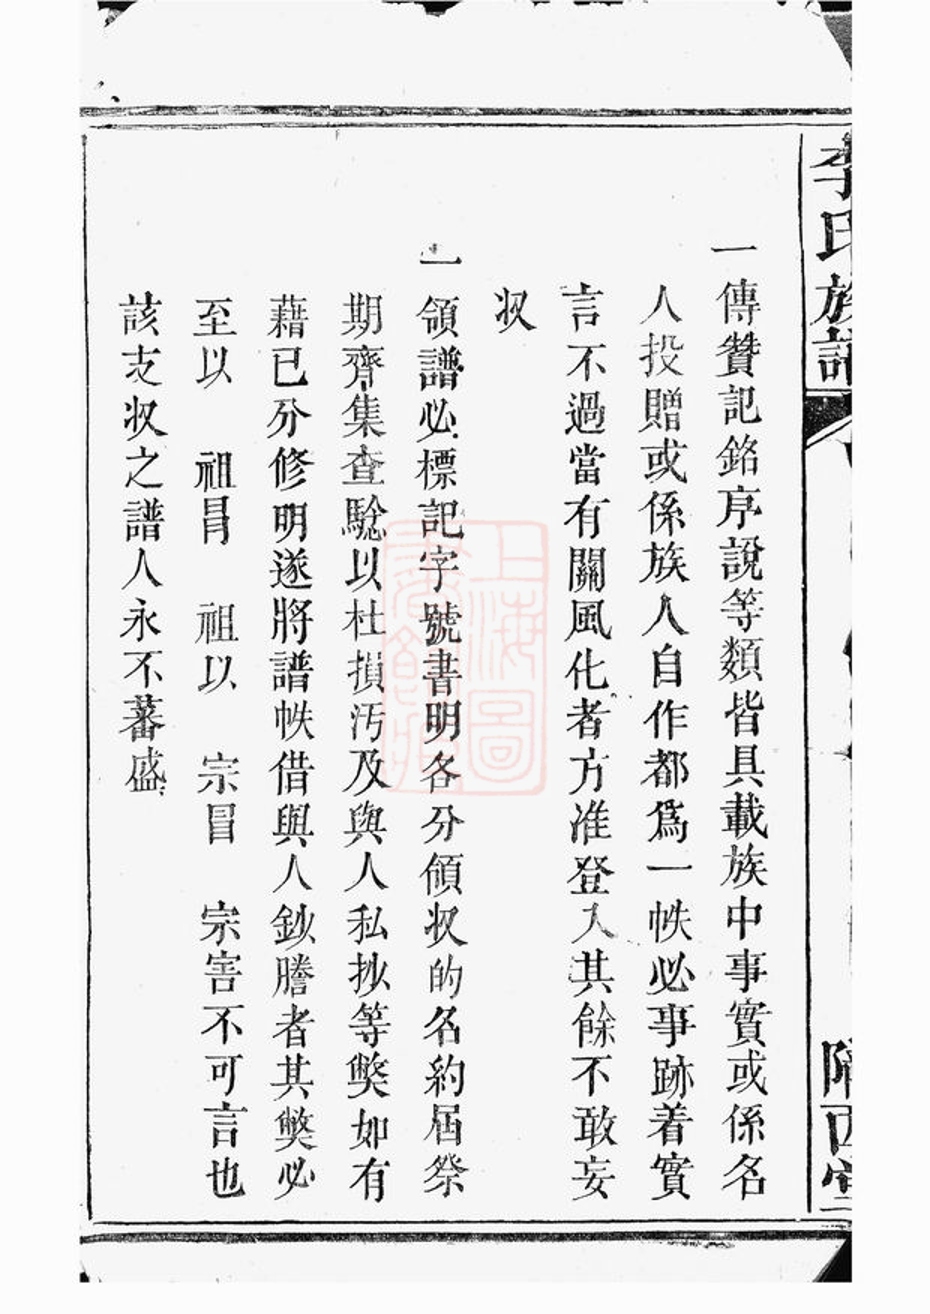 李氏族譜
隴西堂
一傳贊記銘序說等類皆具載族中事實或係名
人投贈或係族人自作都爲一帙必事跡着實
言不過當有關風化者方准登入其餘不敢妄
収
一領譜必標記字號書明各分領収的名約屆祭
期齊集查驗以杜損污及與人私抄等獘如有
藉已分修明遂將譜帙借與人鈔謄者其獘必
至以 祖冐 祖以 宗冒 宗害不可言也
該支収之譜人永不蕃盛
上海圖